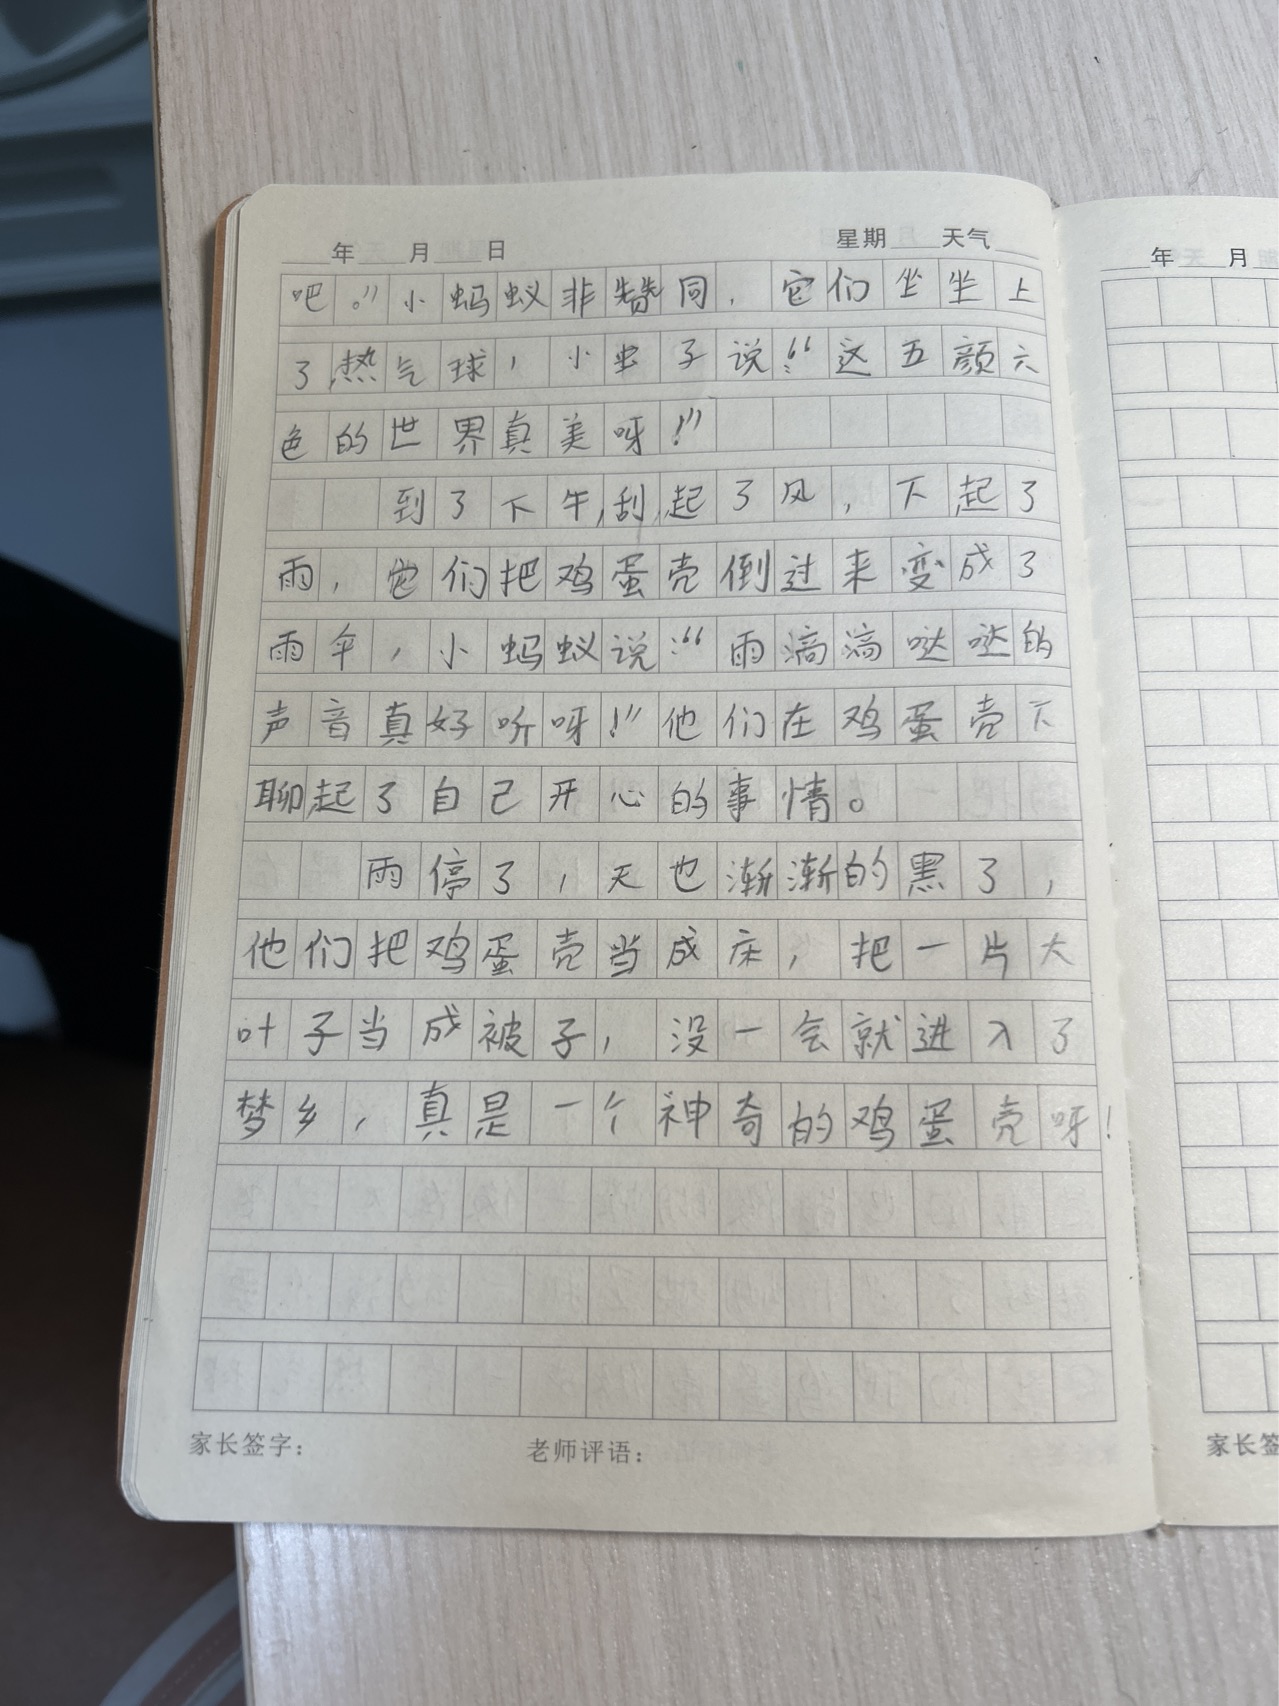 年 月 日 星期 天气
吧。”小蚂蚁非赞同，它们坐坐上
了热气球，小虫子说：“这五颜六
色的世界真美呀！”
到了下午，刮起了风，下起了
雨，他们把鸡蛋壳倒过来变成了
雨伞，小蚂蚁说：“雨滴滴哒哒的
声音真好听呀！”他们在鸡蛋壳下
聊起了自己开心的事情。
雨停了，天也渐渐的黑了，
他们把鸡蛋壳当成床，把一片大
叶子当成被子，没一会就进入了
梦乡，真是一个神奇的鸡蛋壳呀！
家长签字： 老师评语：
年 月
家长签